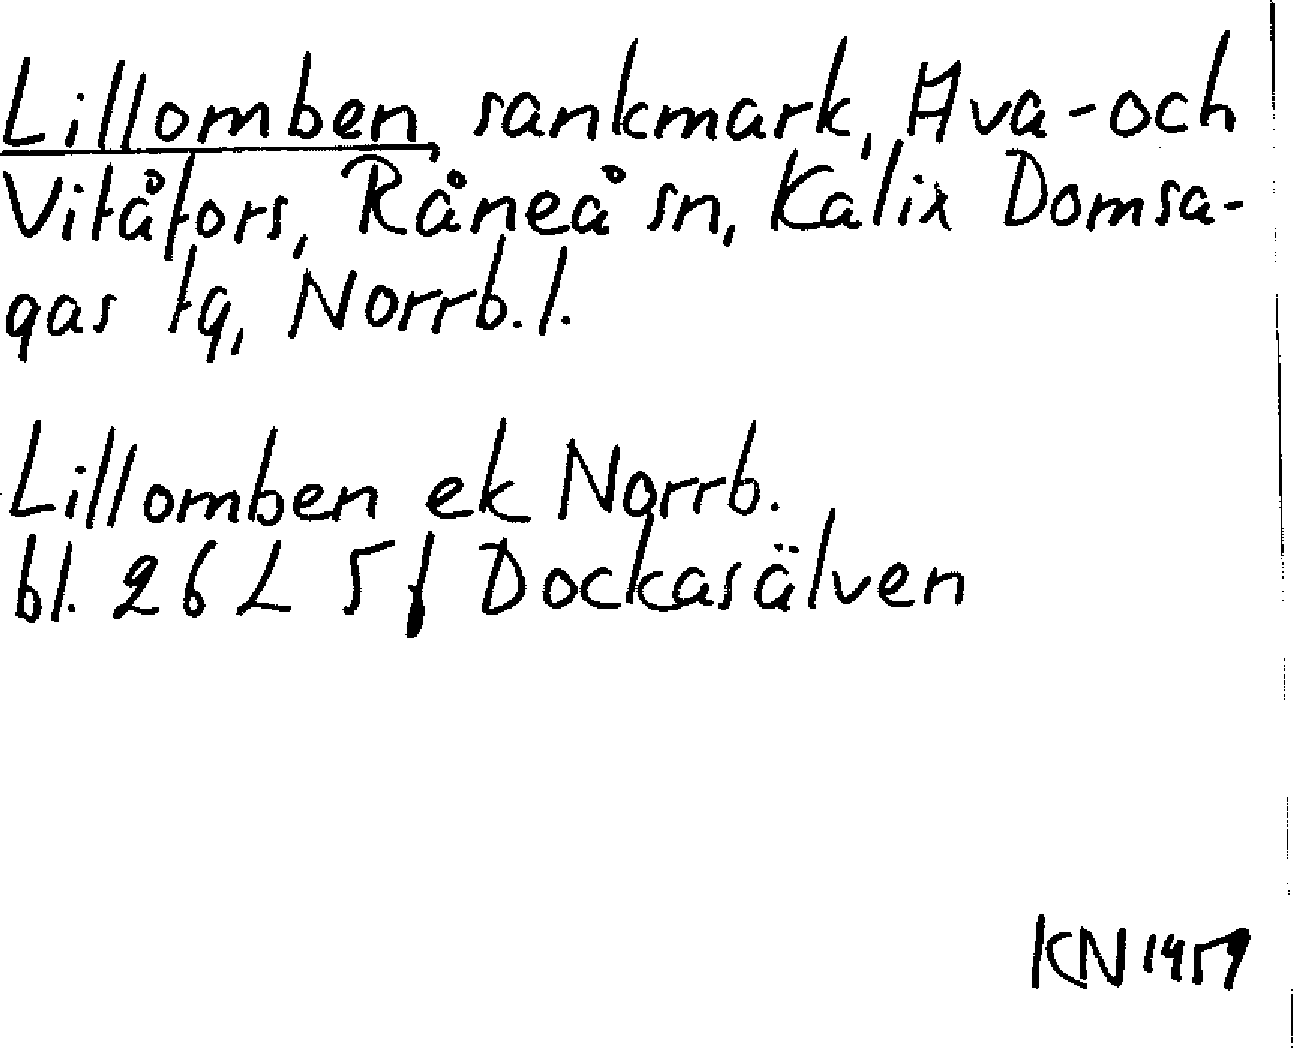 Lillomben, sankmark, Ava- och
Vitåfors, Råneå sn, Kalix Domsa-
gas tg, Norrb. l.
Lillomben ek Norrb.
bl. 26 L 5 f Dockasälven
KN 1959